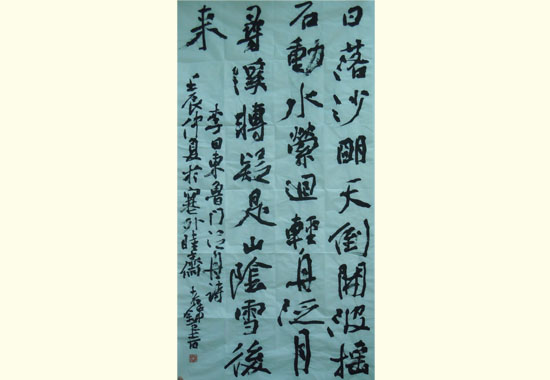 日落沙明天倒開波搖
石動水縈迴輕舟泛月
尋溪轉疑是山陰雪後
来
李白東魯門泛舟詩
壬辰仲夏於塞外